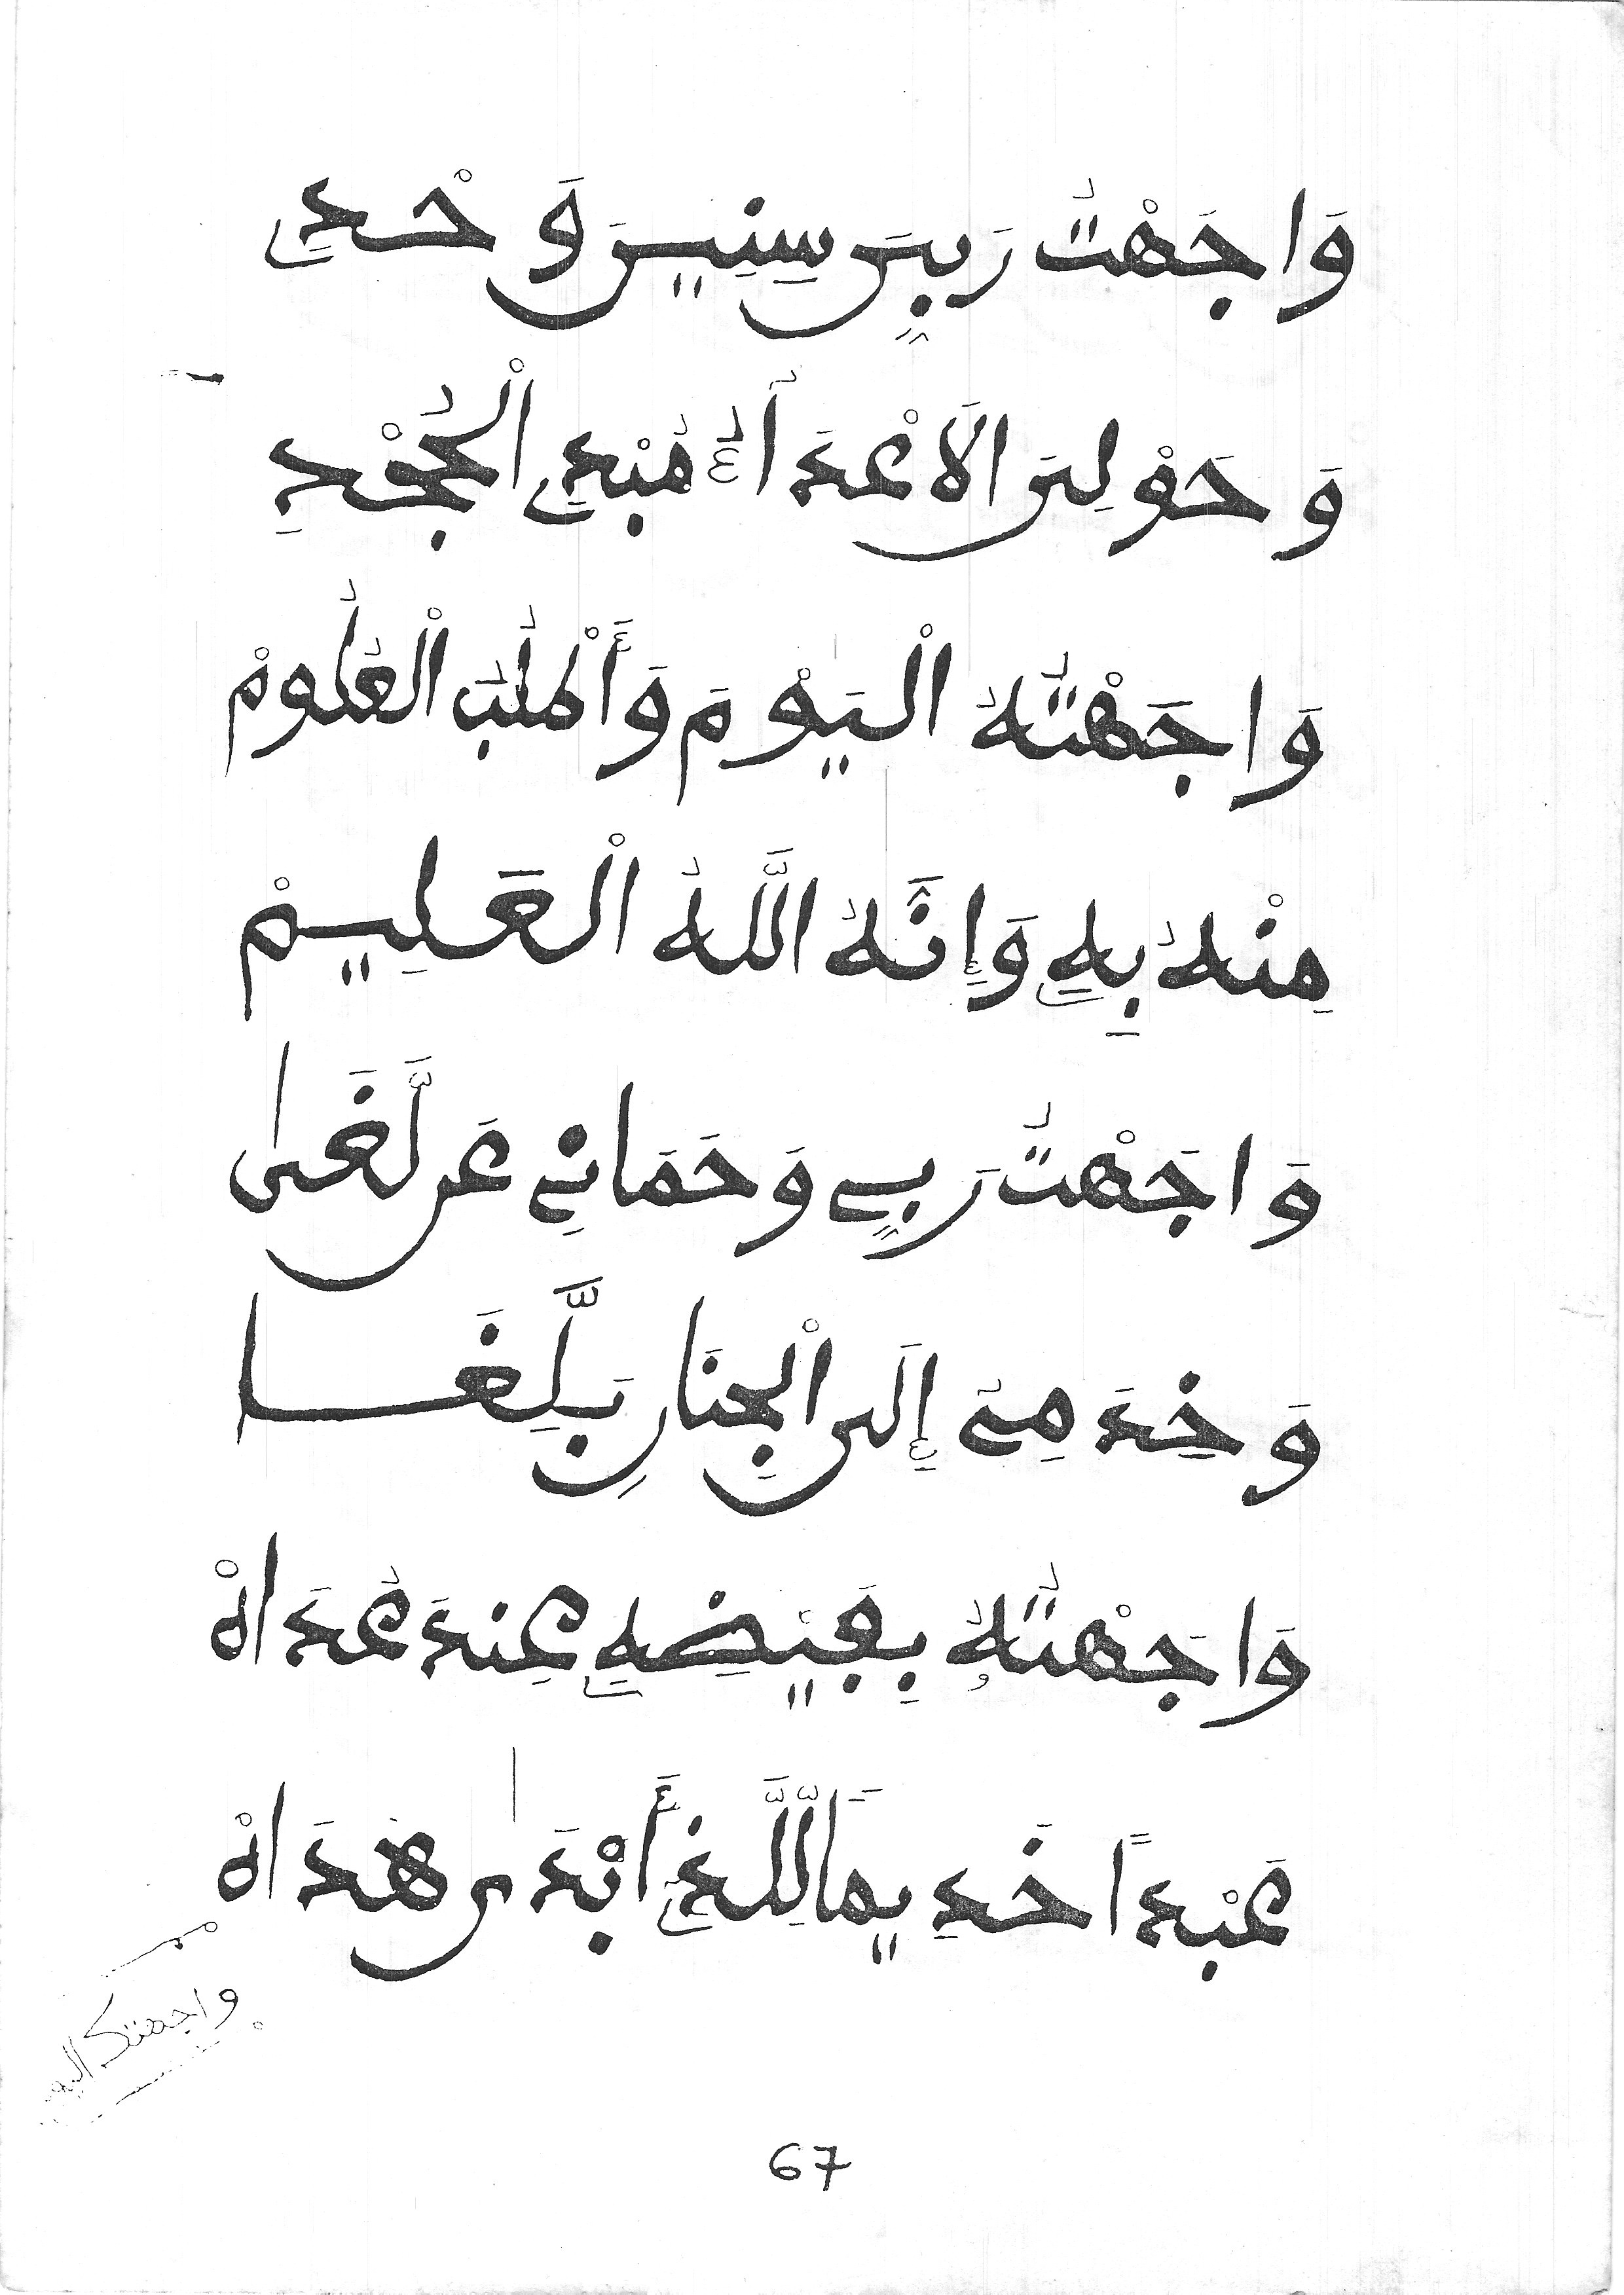 وَاجَهْتُ رَبِّىَ سِنِينَ وَحْدِي
وَحَوْلِىَ الَاعْدَاءُ مُبْدِي الْجُنْدِ
وَاجَهْتُهُ الْيَوْمَ وَأَطْلُبُ الْعُلُومْ
مِنْهُ بِهِ وَإِنَّهُ اللَّهُ الْعَلِيمْ
وَاجَهْتُ رَبِّي وَحَمَانِي عَن لَّغَى
وَخِدْمَتِي إِلَى الْجِنَانِ بَلَّغَا
وَاجَهْتُهُ بِفَيْضِهِ عِندَ عُدَاهْ
عَبْداً خَدِيماً لِلَّذِي أَبْدَى هُدَاهْ
واجهتك اليو
67